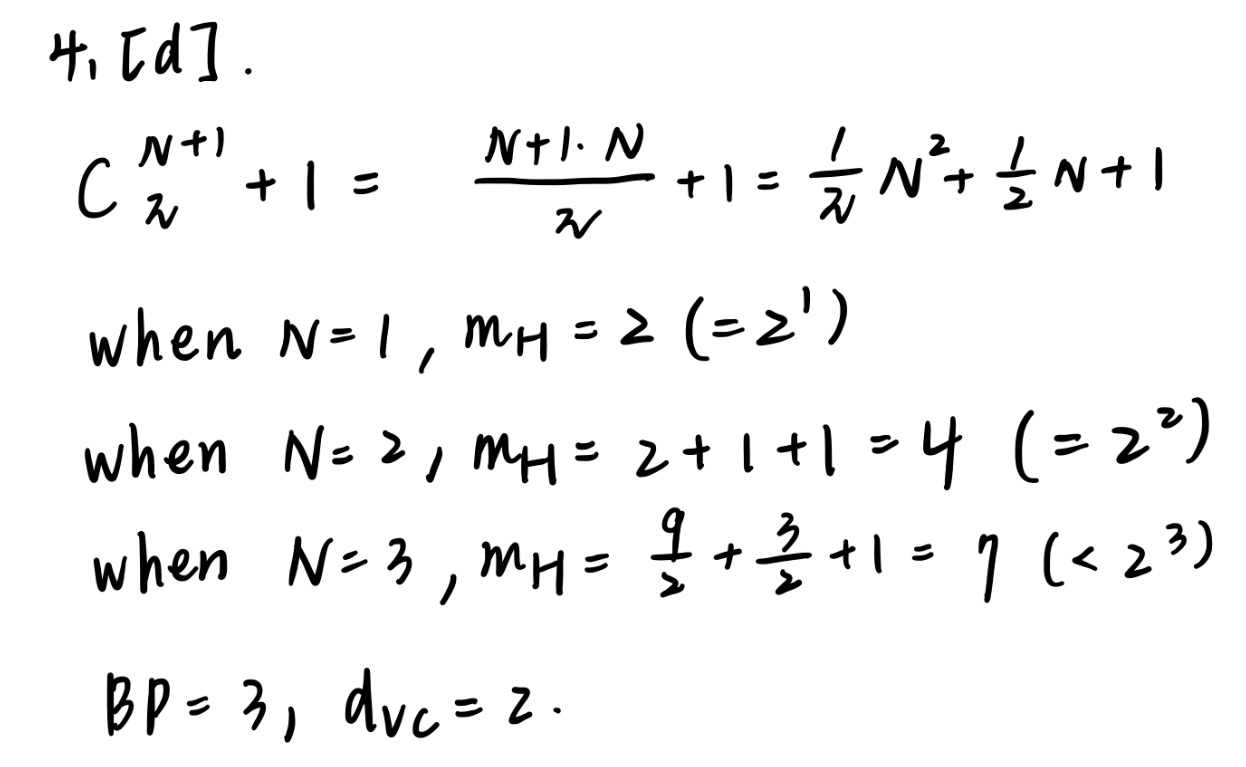 4. [d].
C^{N+1}_2 + 1 = \frac{N+1 · N}{2} + 1 = \frac{1}{2} N^2 + \frac{1}{2} N + 1
when N = 1, m_H = 2 (= 2^1)
when N = 2, m_H = 2 + 1 + 1 = 4 (= 2^2)
when N = 3, m_H = \frac{9}{2} + \frac{3}{2} + 1 = 7 (< 2^3)
BP = 3, d_{VC} = 2.